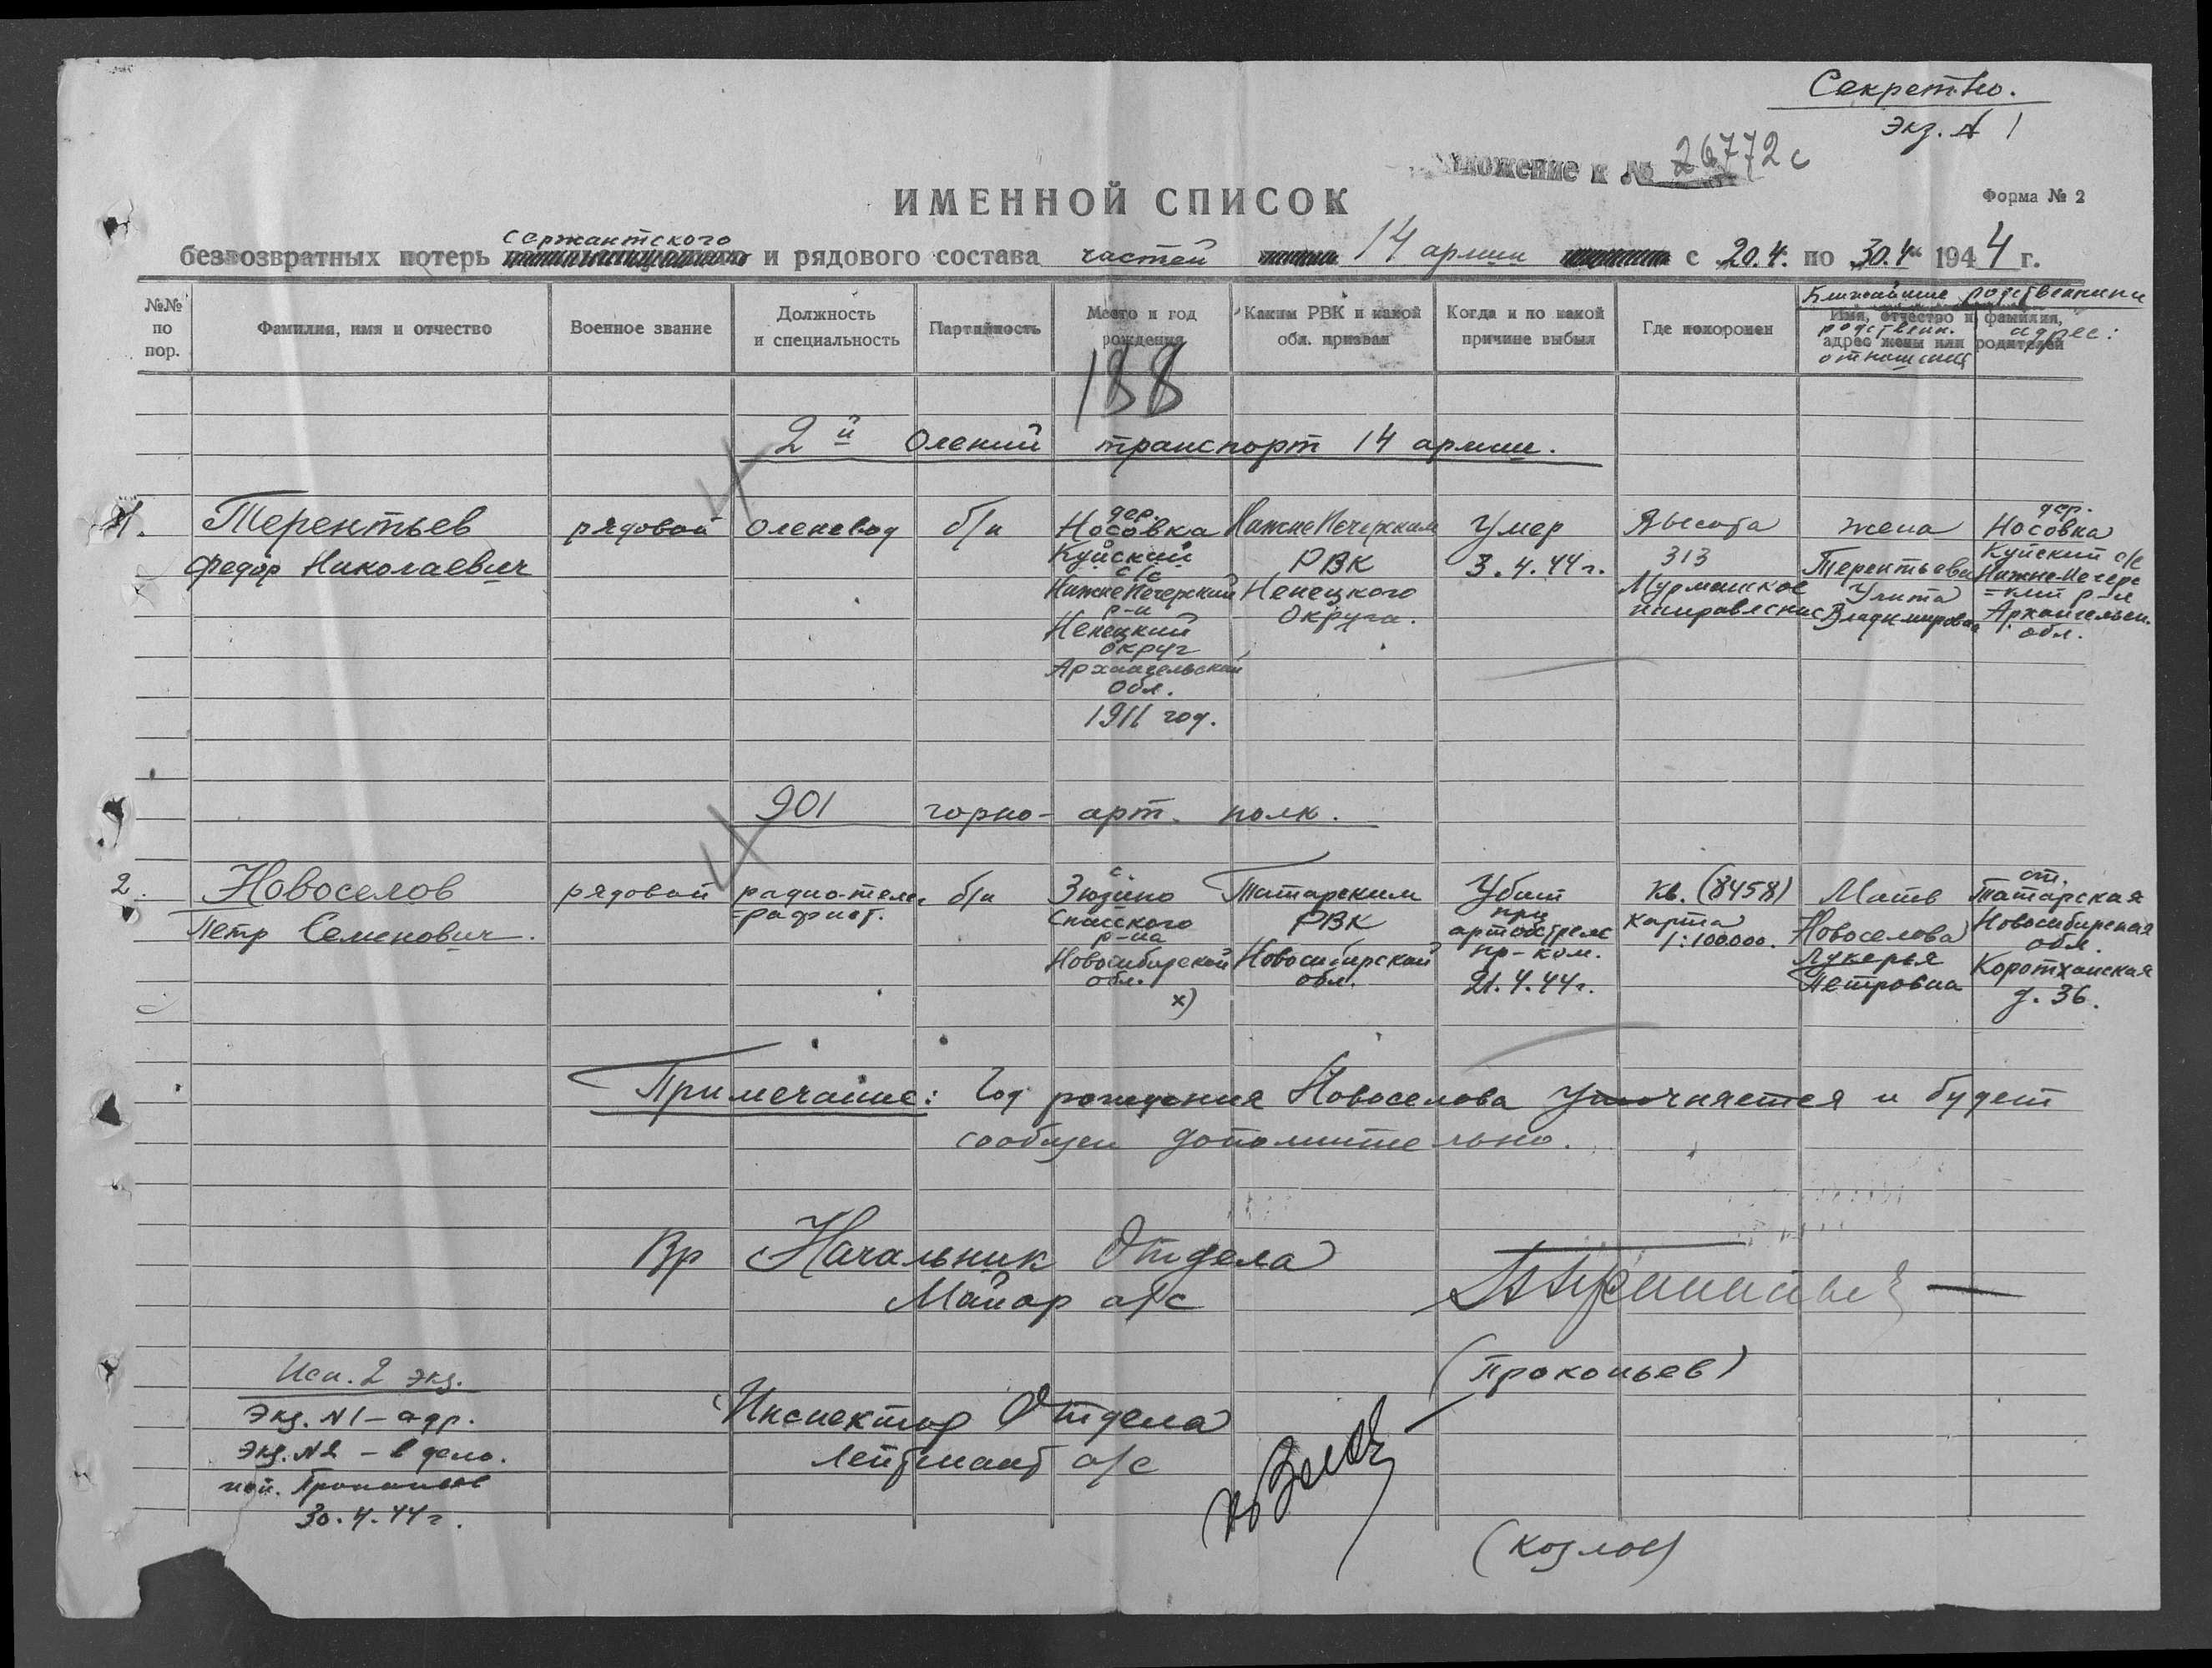 Секретно.
Экз. № 1
ложение к № 26772с
ИМЕННОЙ СПИСОК
Форма № 2
сержантского
безвозвратных потерь и рядового состава частей 14 армии с 20.4. по 30.4. 1944 г.
№№ по пор.
Фамилия, имя и отчество
Военное звание
Должность и специальность
Партийность
Место и год рождения
Каким РВК и какой обл. призван
Когда и по какой причине выбыл
Где похоронен
Ближайшие родственники
Имя, отчество и фамилия,
родственн. адрес:
адрес жены или родителей
отношения
188
2й Олений транспорт 14 армии.
1.
Терентьев
Федор Николаевич
рядовой
оленевод
б/п
дер.
Носовка
Куйский
с/с
НижнеПечерский
р-н
Ненецкий
округ
Архангельской
обл.
1911 год.
НижнеПечерским
РВК
Ненецкого
Округа.
Умер
3.4.44г.
Высота
313
Мурманское
направление
жена
Терентьева
Улита
Владимировна
дер.
Носовка
Куйский с/с
Нижне-Печерс
=кий р-н
Архангельск.
обл.
901 горно-арт. полк.
2.
Новоселов
Петр Семенович.
рядовой
радио-теле
=графист.
б/п
с.
Зюзино
Спасского
р-на
Новосибирской
обл.
х)
Татарским
РВК
Новосибирской
обл.
Убит
при
артобстреле
пр-ком.
21.4.44г.
кв. (8458)
карта
1:100000.
Мать
Новоселова
Лукерья
Петровна
ст.
Татарская
Новосибирская
обл.
д. 36.
Примечание: Год рождения Новоселова уточняется и будет
сообщен дополнительно.
Вр Начальник Отдела
Майор а/с
(Прокопьев)
Инспектор Отдела
Лейтенант а/с
(Козлов)
Исп. 2 экз.
Экз. №1 – адр.
Экз. №2 – в дело.
30.4.44г.